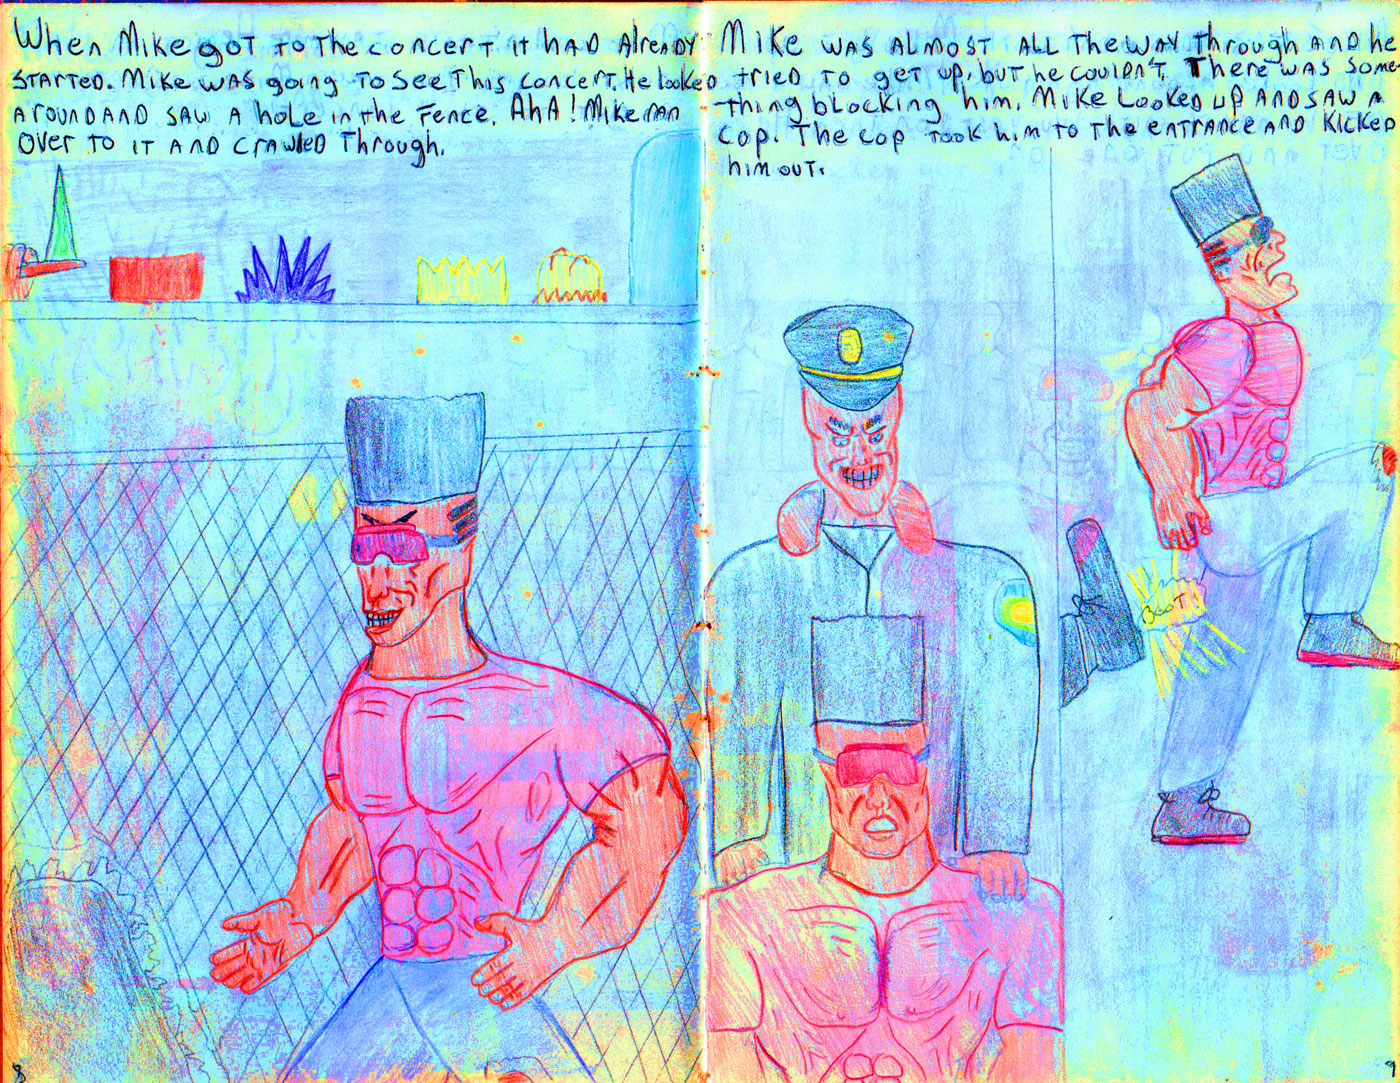 When Mike got to the concert it had already
started. Mike was going to see this concert. He looked
around and saw a hole in the fence. Aha! Mike ran
over to it and crawled through.
8
Mike was almost all the way through and he
tried to get up, but he couldn't. There was some-
thing blocking him. Mike looked up and saw a
cop. The cop took him to the entrance and kicked
him out.
BOOT
9